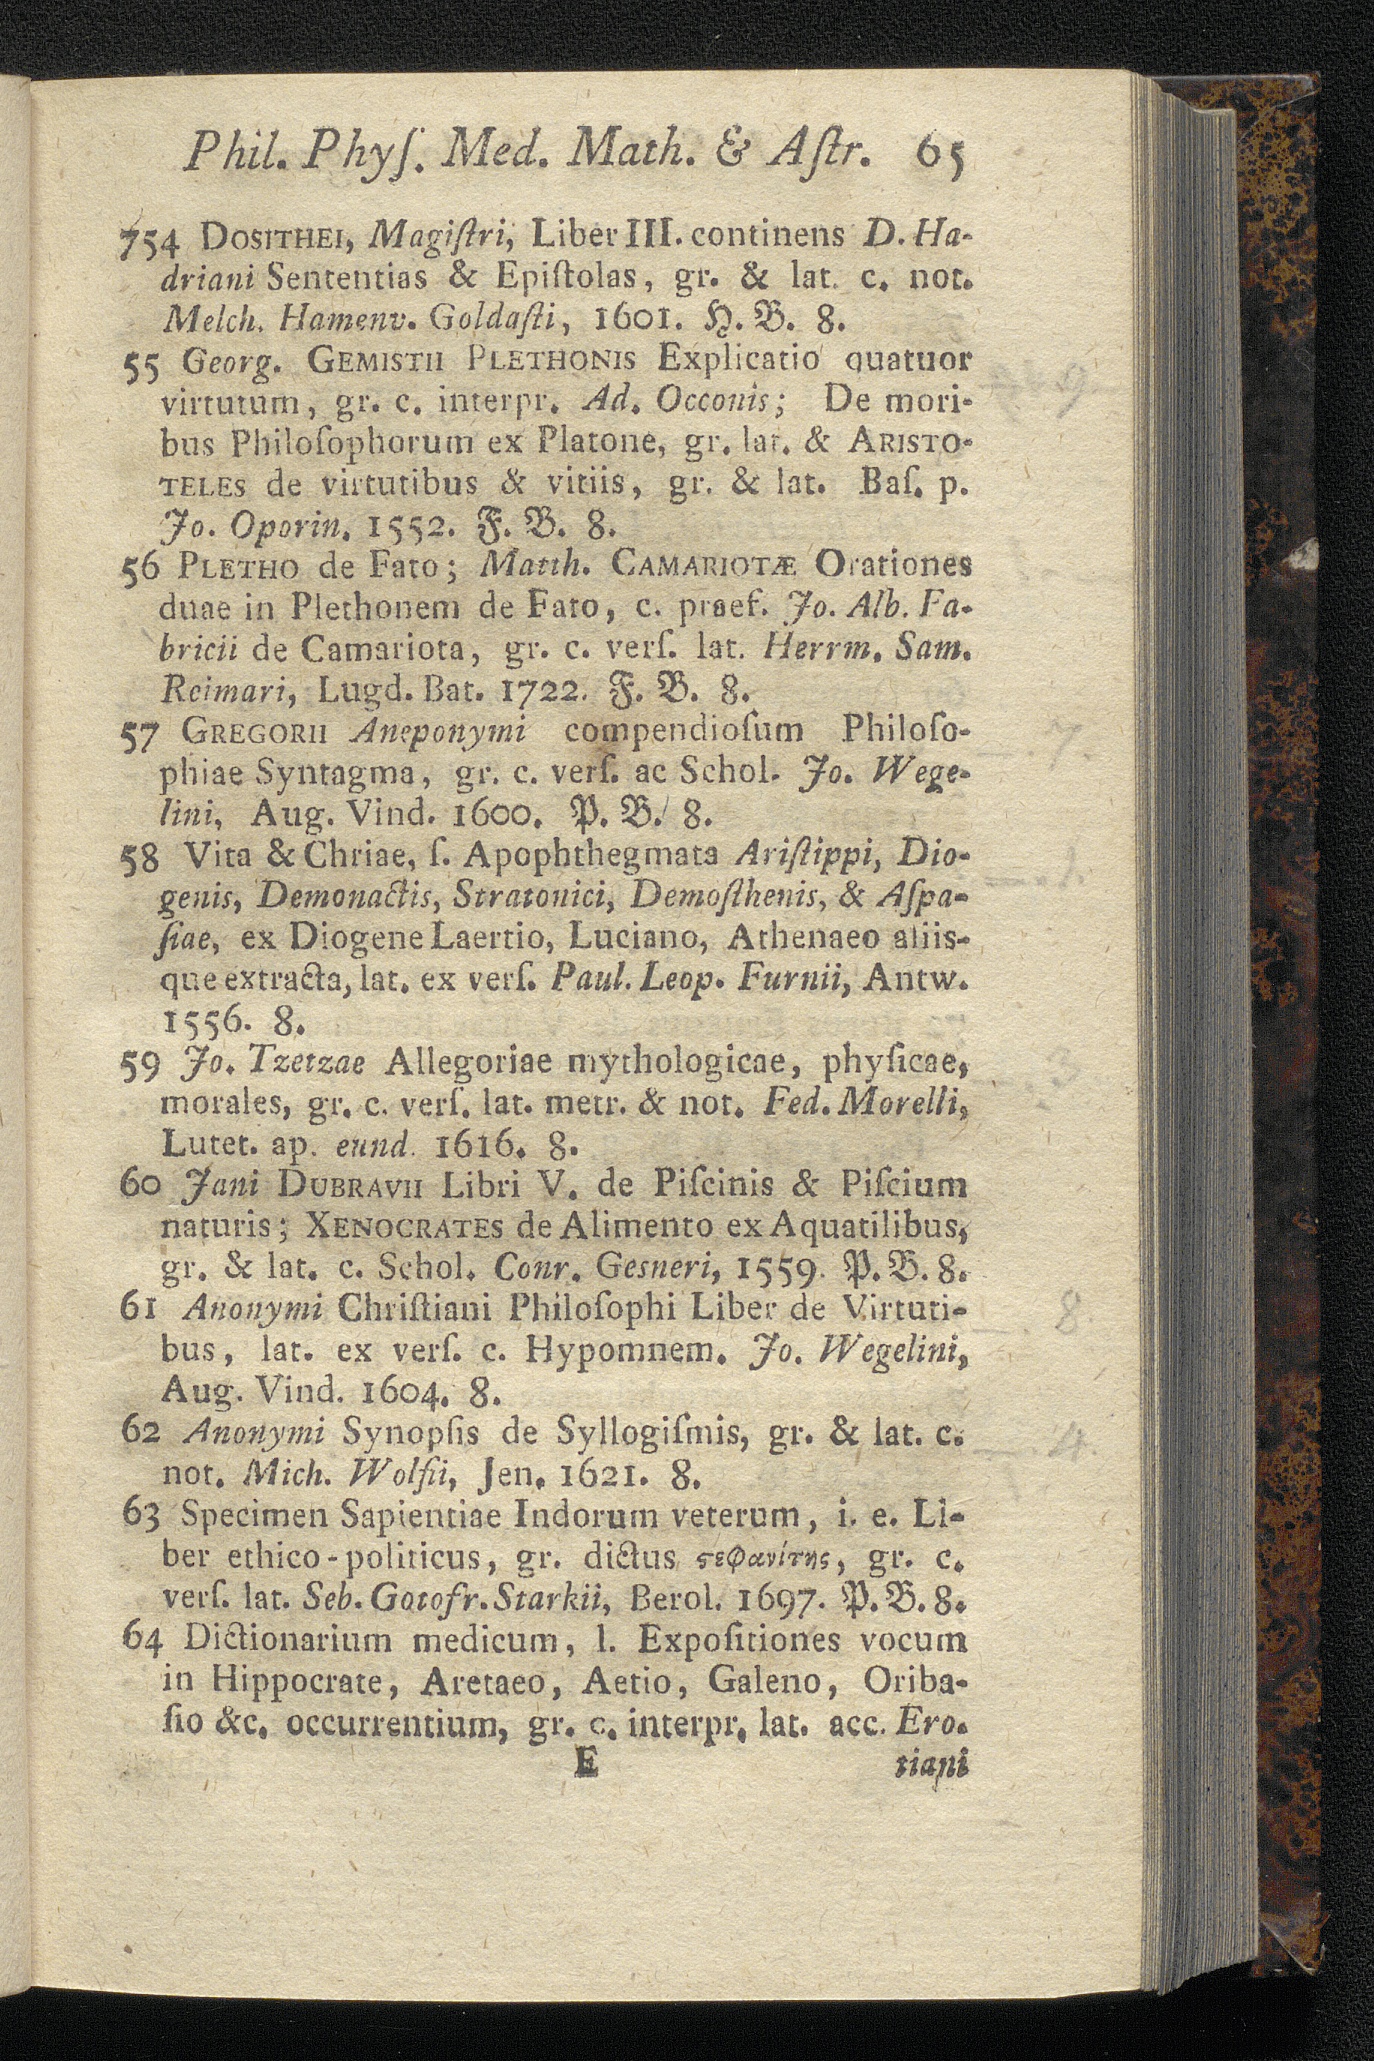 Phil. Phyſ. Med. Math. & Aſtr. 65
754 DOSITHEI, Magiſtri, Liber III. continens D. Ha-
driani Sententias & Epiſtolas, gr. & lat. c. not.
Melch. Hamenv. Goldaſti, 1601. H. B. 8.
55 Georg. GEMISTII PLETHONIS Explicatio quatuor
virtutum, gr. c. interpr. Ad. Occonis; De mori-
bus Philoſophorum ex Platone, gr. lat. & ARISTO-
TELES de virtutibus & vitiis, gr. & lat. Baſ. p.
Jo. Oporin. 1552. F. B. 8.
56 PLETHO de Fato; Matth. CAMARIOTÆ Orationes
duae in Plethonem de Fato, c. praef. Jo. Alb. Fa-
bricii de Camariota, gr. c. verſ. lat. Herrm. Sam.
Reimari, Lugd. Bat. 1722. F. B. 8.
57 GREGORII Aneponymi compendioſum Philoſo-
phiae Syntagma, gr. c. verſ. ac Schol. Jo. Wege-
lini, Aug. Vind. 1600. P. B. 8.
58 Vita & Chriae, ſ. Apophthegmata Ariſtippi, Dio-
genis, Demonactis, Stratonici, Demoſthenis, & Aſpa-
ſiae, ex Diogene Laertio, Luciano, Athenaeo aliis-
que extracta, lat. ex verſ. Paul. Leop. Furnii, Antw.
1556. 8.
59 Jo. Tzetzae Allegoriae mythologicae, phyſicae,
morales, gr. c. verſ. lat. metr. & not. Fed. Morelli,
Lutet. ap. eund. 1616. 8.
60 Jani DUBRAVII Libri V. de Piſcinis & Piſcium
naturis; XENOCRATES de Alimento ex Aquatilibus,
gr. & lat. c. Schol. Conr. Gesneri, 1559. P. B. 8.
61 Anonymi Chriſtiani Philoſophi Liber de Virtuti-
bus, lat. ex verſ. c. Hypomnem. Jo. Wegelini,
Aug. Vind. 1604. 8.
62 Anonymi Synopſis de Syllogiſmis, gr. & lat. c.
not. Mich. Wolfii, Jen. 1621. 8.
63 Specimen Sapientiae Indorum veterum, i. e. Li-
ber ethico-politicus, gr. dictus ϛεφανίτης, gr. c.
verſ. lat. Seb. Gotofr. Starkii, Berol. 1697. P. B. 8.
64 Dictionarium medicum, l. Expoſitiones vocum
in Hippocrate, Aretaeo, Aetio, Galeno, Oriba-
ſio &c. occurrentium, gr. c. interpr. lat. acc. Ero-
E tiani